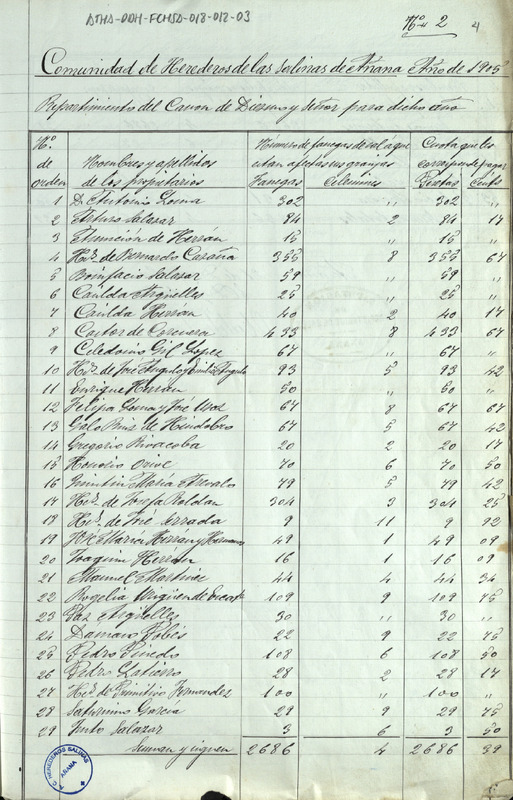 ATHA-DDH-FCHSD-018-012-03
Nº 2
4
Comunidad de Herederos de las Salinas de Añana Año de 1905
Repartimiento del Canon de Diezmo y Señor para dicho año
Nº de orden Nombres y apellidos de los propietarios Número de fanegas de sal á que estan afectas sus granjas Cuota que les corresponde pagar
Fanegas Celemines Pesetas Cents
1 D. Antonio 302 " 302 "
2 Arturo Salazar 84 2 84 17
3 Asunción de Herrán 15 " 15 "
4 Hros. de Bernardo 355 8 355 67
5 Bonifacio Salazar 59 " 59 "
6 Casilda Argüelles 25 " 25 "
7 Casilda Herrán 40 2 40 17
8 Castor de Corcuera 433 8 433 67
9 Celedonio Gil Lopez 67 " 67 "
10 Hros. de José Angulo y Emilia Angulo 93 5 93 42
11 Enrique Herrán 50 " 50 "
12 Felipa y José 67 8 67 67
13 Galo Ruiz de 67 5 67 42
14 Gregorio Rivacoba 20 2 20 17
15 Honorio Orive 70 6 70 50
16 Quintin Maria Arevalo 79 5 79 42
17 Hros. de Josefa Roldan 304 3 304 25
18 Hros. de José 9 11 9 92
19 José Maria Herran y Hermanos 49 1 49 09
20 Joaquin Herrán 16 1 16 09
21 Manuel Martinez 44 4 44 34
22 Rogelia 109 9 109 75
23 Paz Argüelles 30 " 30 "
24 Damaso 22 9 22 75
25 Pedro Pinedo 108 6 108 50
26 Pedro 28 2 28 17
27 Hros. de Primitivo Fernandez 100 " 100 "
28 Saturnino García 29 9 29 75
29 Justo Salazar 3 6 3 50
Suman y siguen 2686 4 2686 39
C. HEREDEROS SALINAS
AÑANA